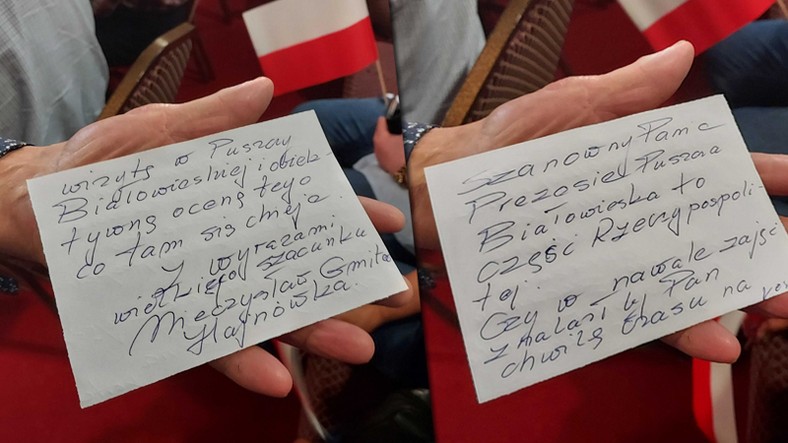 wizytę w Puszczy
Białowieskiej i obiek-
tywną ocenę tego
co tam się dzieje.
Z wyrazami
wielkiego szacunku
Mieczysław Gmiter
Hajnówka.
Szanowny Panie
Prezesie! Puszcza
Białowieska to
część Rzeczypospoli-
tej.
Czy w nawale zajęć
znalazł by Pan
chwilę czasu na